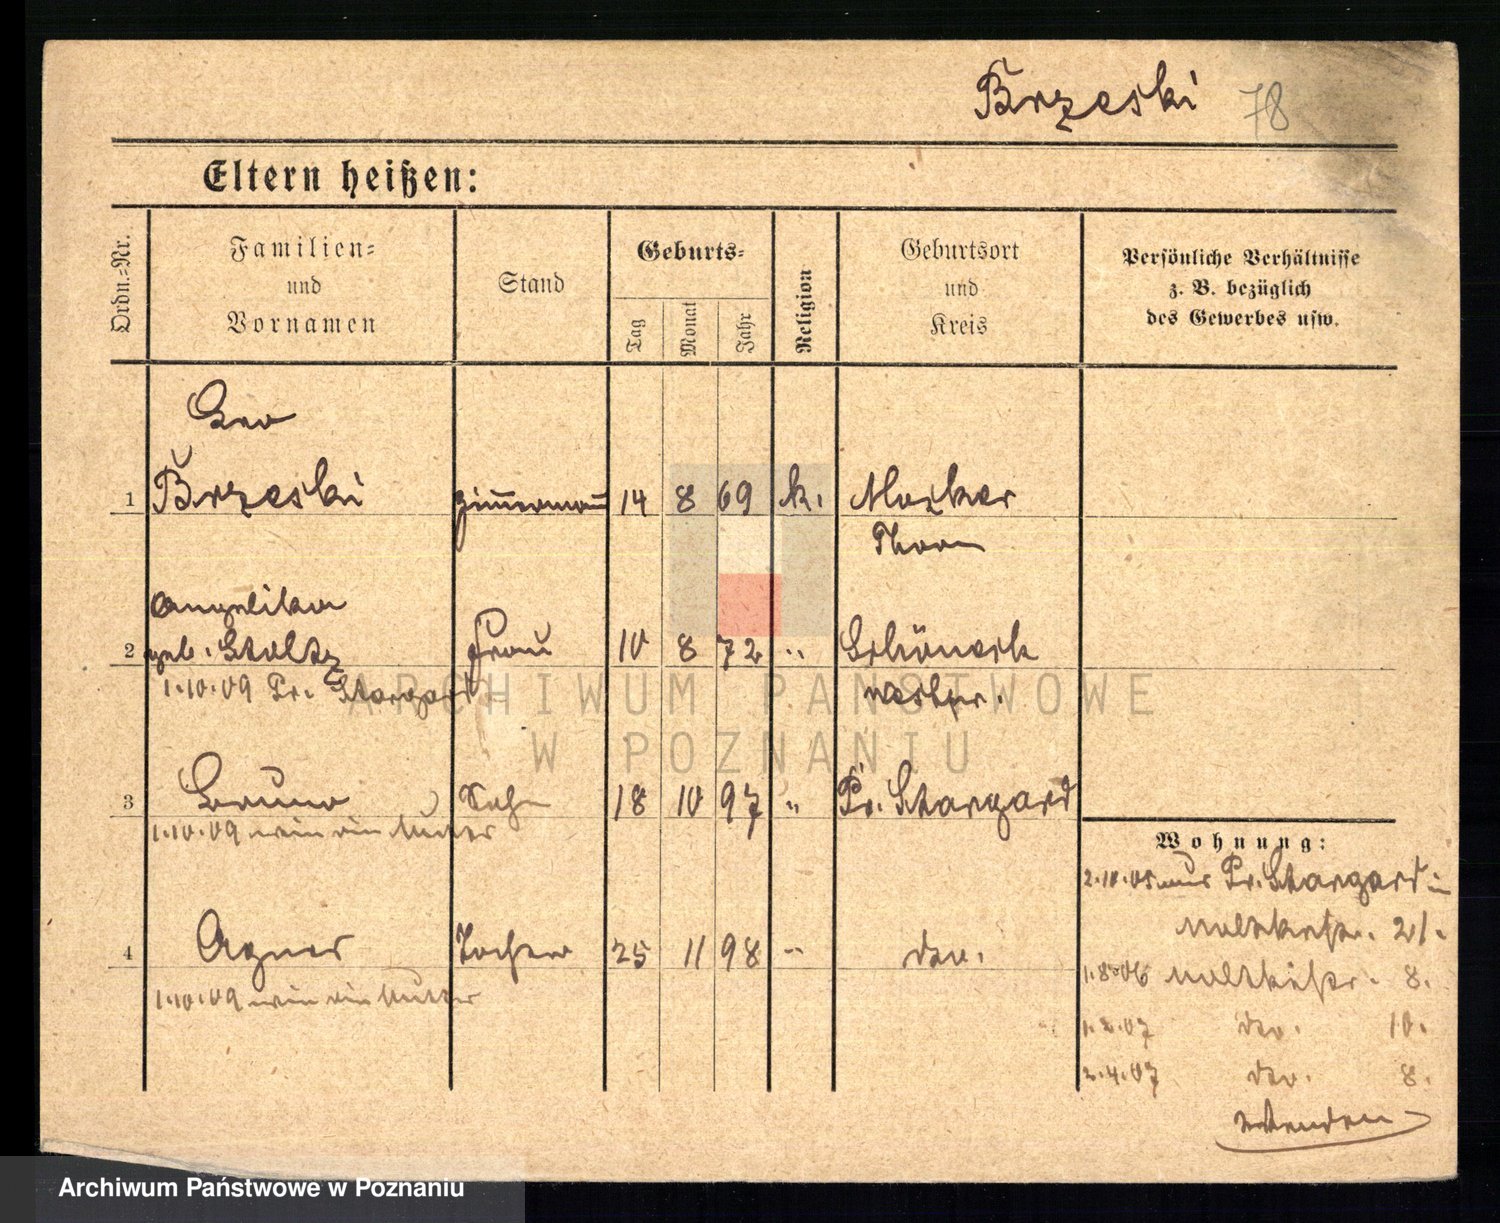 Brzeski 78
Eltern heißen:
Ordn.-Nr.
Familien-
und
Vornamen
Stand
Geburts-
Tag
Monat
Jahr
Religion
Geburtsort
und
Kreis
Persönliche Verhältnisse
z. B. bezüglich
des Gewerbes usw.
Leo
1 Brzeski Zimmermann 14 8 69 k. Mocker
Thorn
Angelika
2 geb. Stoltz Frau 10 8 72 " Schöneck
1.10.09 Pr. Stargard
Westpr.
3 Bruno Sohn 18 10 97 " Pr. Stargard
1.10.09 wie die Mutter
4 Agnes Tochter 25 11 98 " do.
1.10.09 wie die Mutter
Wohnung:
2.10.05 aus Pr. Stargard in
Moltkestr. 21.
1.8.06 Moltkestr. 8.
1.2.07 do. 10.
2.4.07 do. 8.
wenden
ARCHIWUM PAŃSTWOWE
W POZNANIU
Archiwum Państwowe w Poznaniu